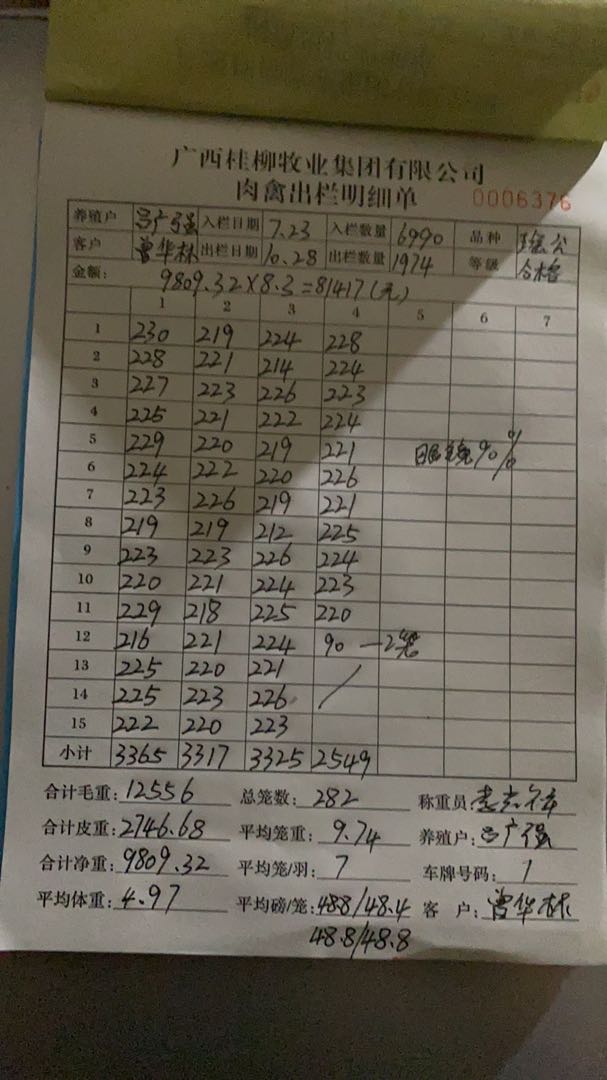 广西桂柳牧业集团有限公司
肉禽出栏明细单 0006376
养殖户 吕广强 入栏日期 7.23 入栏数量 6990 品种 瑶公
客户 曾华林 出栏日期 10.28 出栏数量 1974 等级 合格
金额: 9809.32×8.3=81417(元)
1 2 3 4 5 6 7
1 230 219 224 228
2 228 221 214 224
3 227 223 226 223
4 225 221 222 224
5 229 220 219 221 90%
6 224 222 220 226
7 223 226 219 221
8 219 219 212 225
9 223 223 226 224
10 220 221 224 223
11 229 218 225 220
12 216 221 224 90 一2笼
13 225 220 221
14 225 223 226 /
15 222 220 223
小计 3365 3317 3325 2549
合计毛重: 12556 总笼数: 282 称重员
合计皮重: 2746.68 平均笼重: 9.74 养殖户: 吕广强
合计净重: 9809.32 平均笼/羽: 7 车牌号码: 1
平均体重: 4.97 平均磅/笼: 48.8/48.4 客户: 曾华林
48.8/48.8